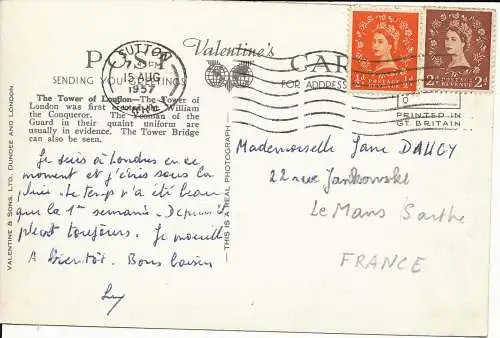 SUTTON
7.45 PM
15 AUG
1957
Valentine's
POST CARD
SENDING YOU GREETINGS
FOR ADDRESS
The Tower of London—The Tower of
London was first erected by William
the Conqueror. The Yeoman of the
Guard in their quaint uniform are
usually in evidence. The Tower Bridge
can also be seen.
Je suis à Londres en ce
moment et j'écris sous la
pluie. Le temps n'a été beau
que la 1re semaine. Depuis il
pleut toujours. Je mouille
A bientôt. Bons baisers
VALENTINE & SONS, LTD. DUNDEE AND LONDON
—THIS IS A REAL PHOTOGRAPH—
½d POSTAGE REVENUE ½d
2d POSTAGE REVENUE 2d
PRINTED IN
GT BRITAIN
Mademoiselle Jane DAUCY
22 rue Jankowski
Le Mans Sarthe
FRANCE